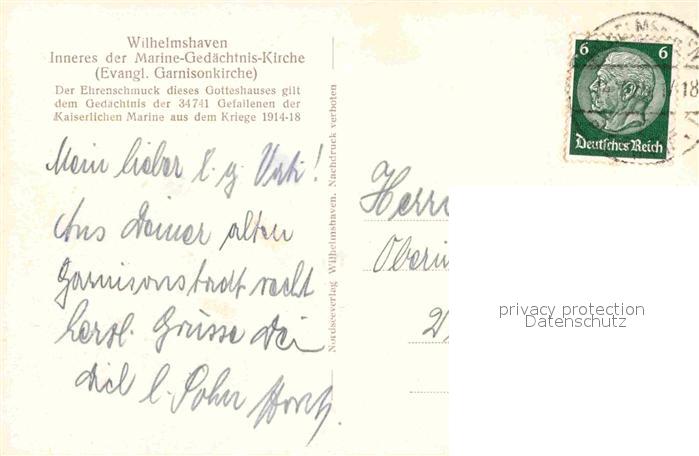 Wilhelmshaven
Inneres der Marine-Gedächtnis-Kirche
(Evangl. Garnisonkirche)
Der Ehrenschmuck dieses Gotteshauses gilt
dem Gedächtnis der 34741 Gefallenen der
Kaiserlichen Marine aus dem Kriege 1914-18
Mein lieber l. g. Vati!
Aus Deiner alten
Garnisonstadt
herzl. Grüsse
Dich l. Sohn Horst.
Nordseeverlag Wilhelmshaven. Nachdruck verboten
6 6
Deutsches Reich
18
Herrn
privacy protection
Datenschutz